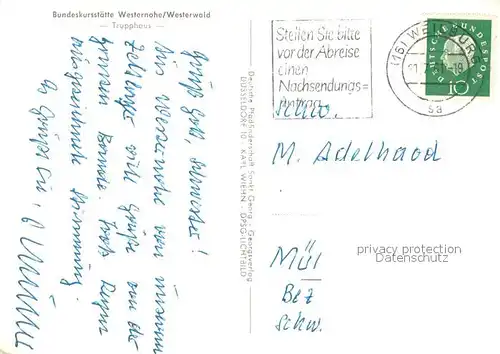 Bundeskursstätte Westernohe/Westerwald
— Trupphaus —
Grüß Gott, Schwester!
Aus Westernohe von unserem
Zeltlager viele Grüße von der
ganzen Bande. Trotz Regen
ausgezeichnete Stimmung.
Es grüßt Sie,
Deutsche Pfadfinderschaft Sankt Georg · Georgsverlag
DÜSSELDORF 10 · KARL WIEHN · DPSG-LICHTBILD
Stellen Sie bitte
vor der Abreise
einen
Nachsendungs=
antrag
(16) WEILBURG
sa
DEUTSCHE BUNDESPOST
10
Schw.
M. Adelhaod
Mül
Bez
Schw.
privacy protection
Datenschutz